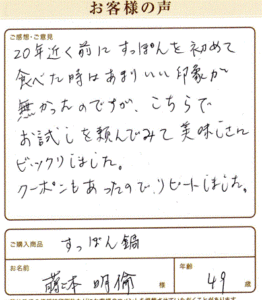 お客様の声
ご感想・ご意見
20年近く前にすっぽんを初めて
食べた時はあまりいい印象が
無かったのですが、こちらで
お試しを頼んでみて美味しさに
ビックリしました。
クーポンもあったので、リピートしました。
ご購入商品
すっぽん鍋
お名前
藤本 明倫 様
年齢
49 歳